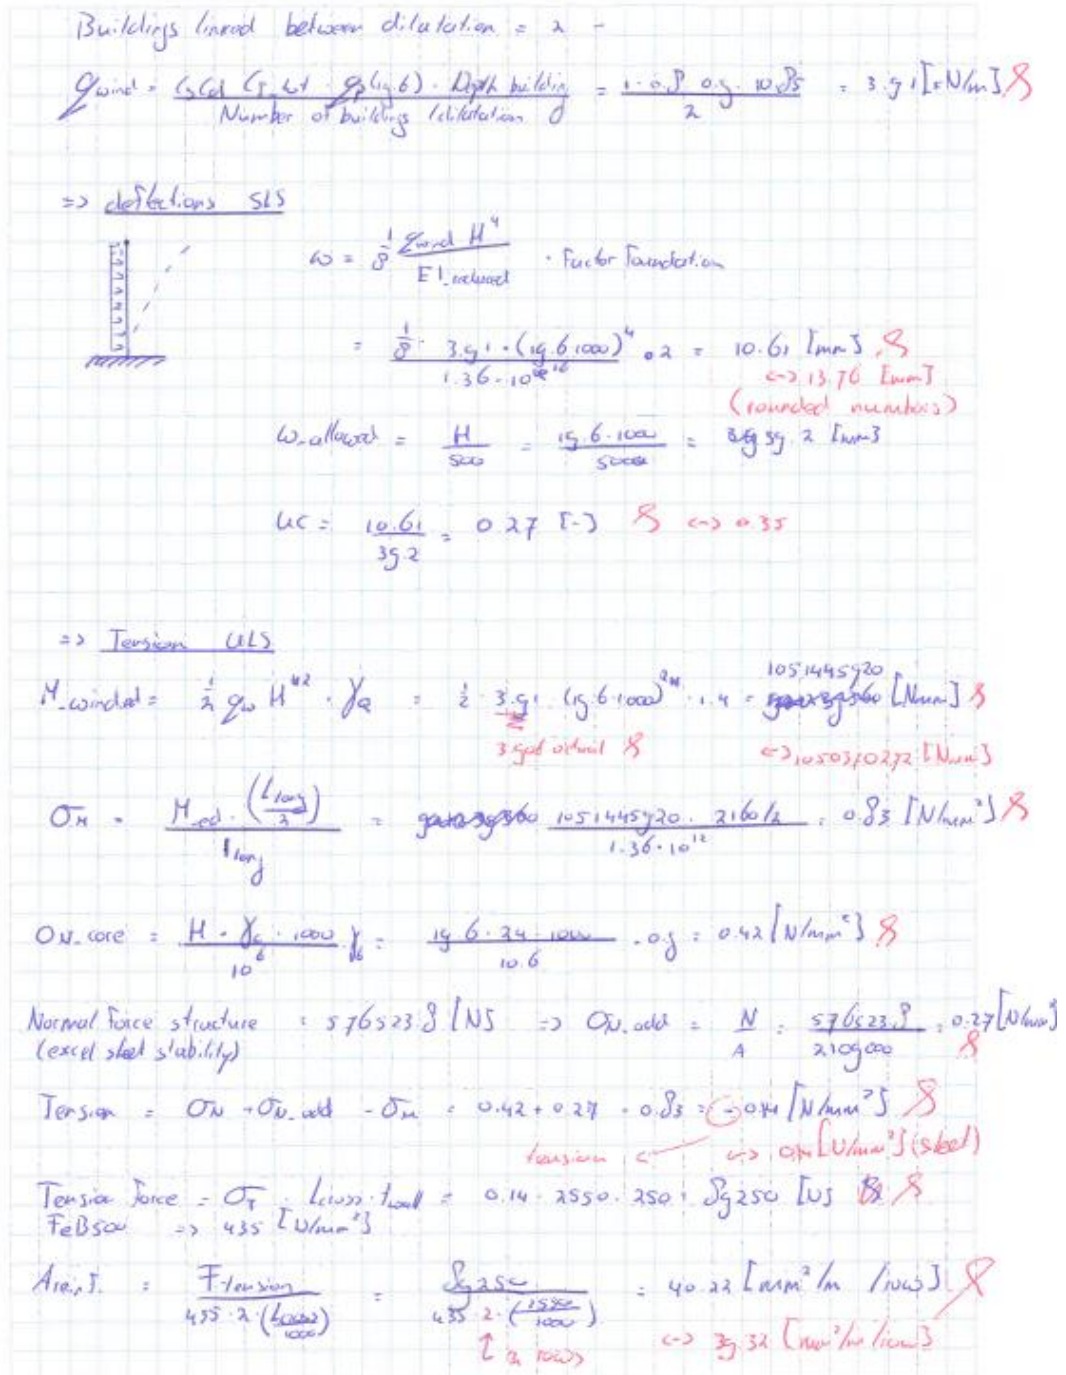 Buildings linked between dilatation = 2 -
q_wind = CsCd Cp_tot · qp(19.6) · Depth building / Number of buildings /dilatation = 1 · 0.8 · 0.9 · 10.85 / 2 = 3.91 [kN/m]
=> deflections SLS
ω = 1/8 q_wind H^4 / EI_reduced · Factor Foundation
= 1/8 · 3.91 · (19.6 · 1000)^4 / 1.36 · 10^16 · 2 = 10.61 [mm]
<-> 13.76 [mm]
(rounded numbers)
ω_allowed = H / 500 = 19.6 · 1000 / 500 = 39.2 [mm]
UC = 10.61 / 39.2 = 0.27 [-] <-> 0.35
=> Tension ULS
M_winded = 1/2 q_w H^2 · γ_Q = 1/2 · 3.91 · (19.6 · 1000)^2 · 1.4 = 1051445920 [Nmm]
<-> 1050370272 [Nmm]
σ_M = M_ed · (L_long / 2) / I_long = 1051445920 · 2160/2 / 1.36 · 10^12 = 0.83 [N/mm²]
σ_N_core = H · γ_c · 1000 / 10^6 γ_G = 19.6 · 24 · 1000 / 10^6 · 0.9 = 0.42 [N/mm²]
Normal Force structure = 576523.8 [N] => σ_N_add = N / A = 576523.8 / 2109000 = 0.27 [N/mm²]
(excel sheet stability)
Tension = σ_N + σ_N_add - σ_M = 0.42 + 0.27 - 0.83 = -0.14 [N/mm²]
tension <- <-> 0.14 [N/mm²] (sheet)
Tension Force = σ_T · L_cross · t_wall = 0.14 · 2550 · 250 = 89250 [N]
FeB500 => 435 [N/mm²]
A_reinf. = F_tension / 435 · 2 · (L_cross / 1000) = 89250 / 435 · 2 · (2550 / 1000) = 40.22 [mm²/m /row]
2 rows <-> 39.32 [mm²/m/row]